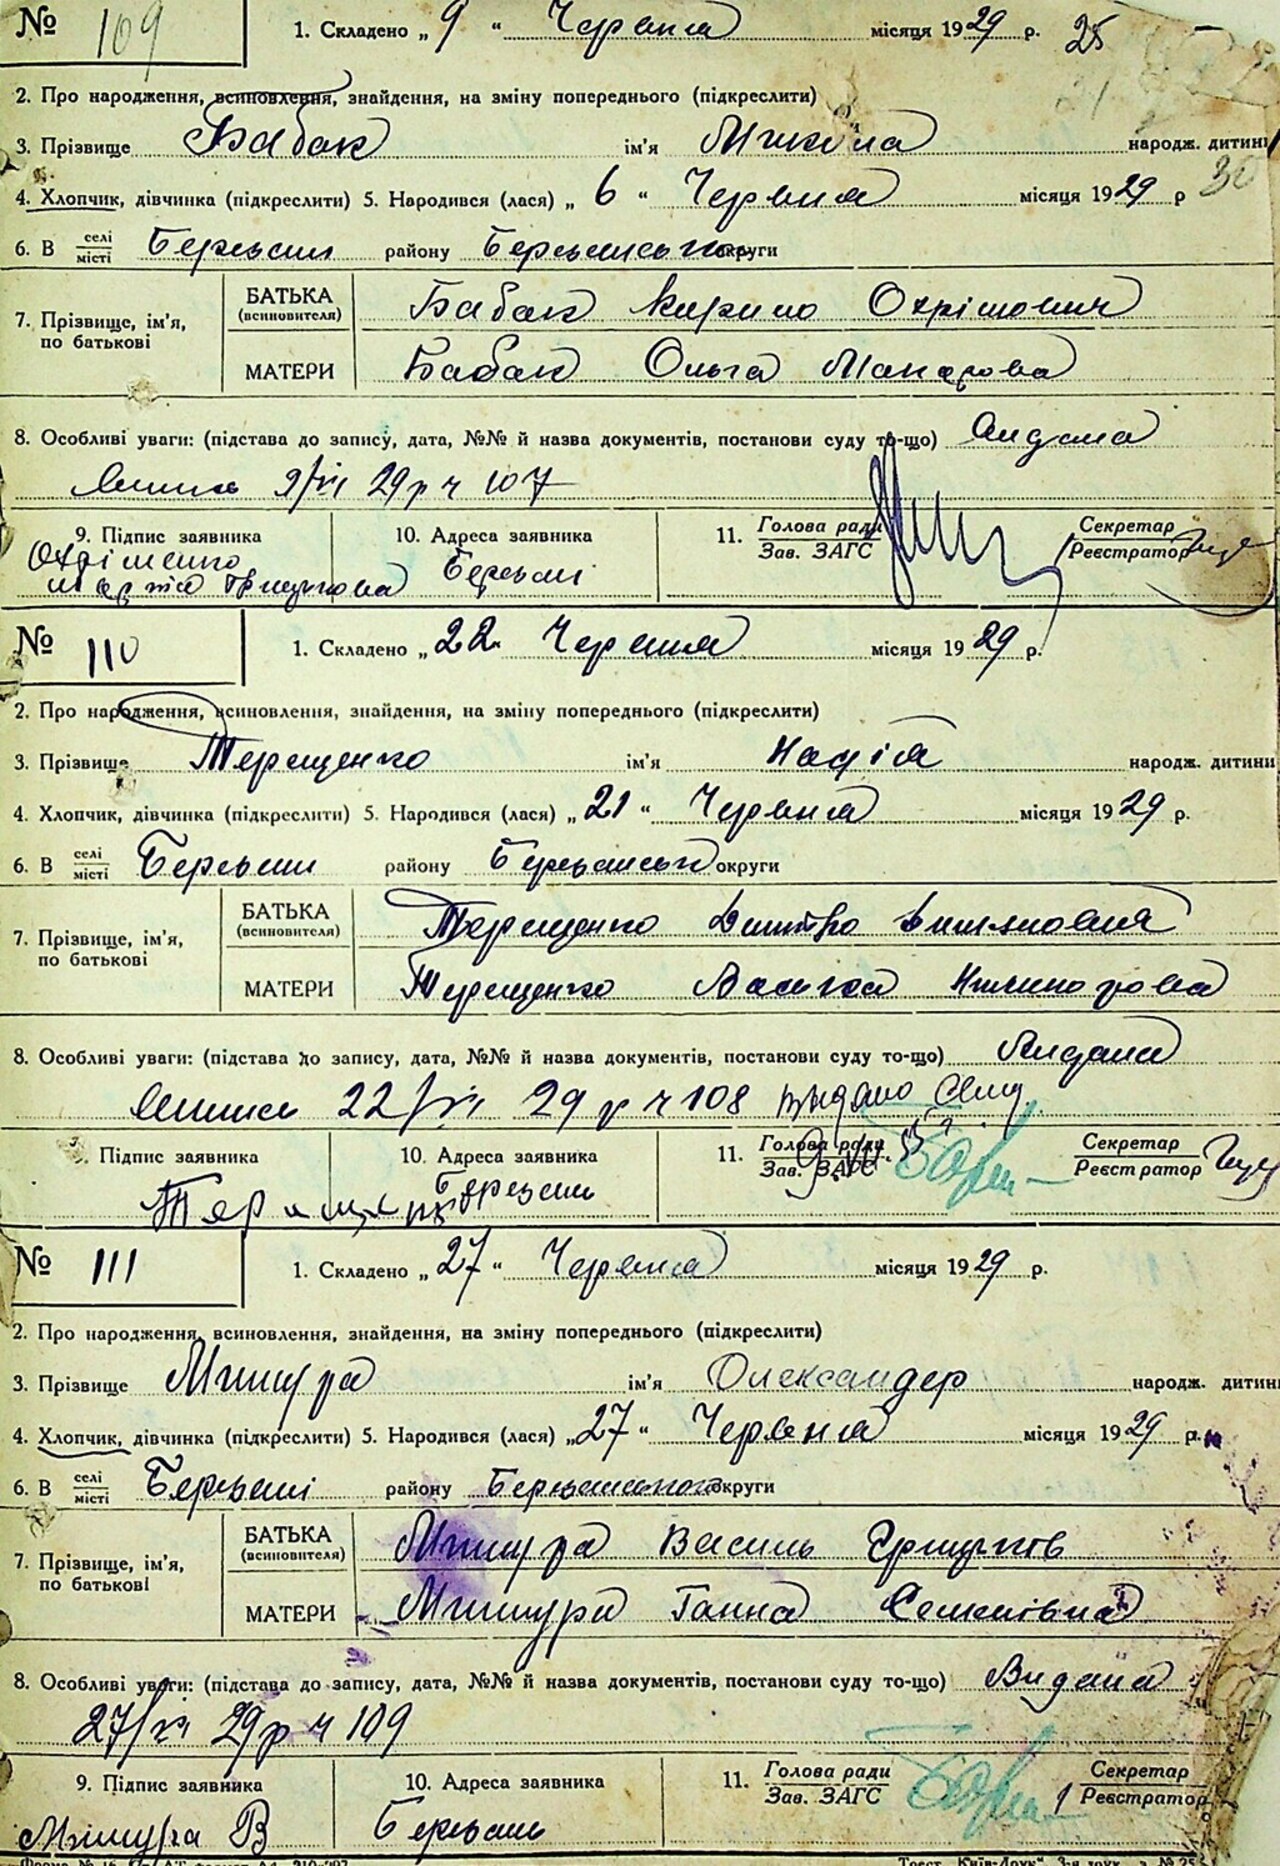 № 109 1. Складено „ 9 “ Червня місяця 1929 р. 25
2. Про народження, всиновлення, знайдення, на зміну попереднього (підкреслити)
3. Прізвище Бабак ім'я Микола народж. дитини
4. Хлопчик, дівчинка (підкреслити) 5. Народився (лася) „ 6 “ Червня місяця 1929 р 30
6. В селі/місті Березані району Березанського округи
7. Прізвище, ім'я, по батькові
БАТЬКА (всиновителя) Бабак Кирило Охрімович
МАТЕРИ Бабак Ольга Макарова
8. Особливі уваги: (підстава до запису, дата, №№ й назва документів, постанови суду то-що) Видана
9/VI 29 р ч 107
9. Підпис заявника 10. Адреса заявника 11. Голова ради/Зав. ЗАГС Секретар/Реєстратор
Охріменко Березані
№ 110 1. Складено „ 22 Червня місяця 1929 р.
2. Про народження, всиновлення, знайдення, на зміну попереднього (підкреслити)
3. Прізвище Терещенко ім'я Надія народж. дитини
4. Хлопчик, дівчинка (підкреслити) 5. Народився (лася) „ 21 “ Червня місяця 1929 р.
6. В селі/місті Березани району Березансько округи
7. Прізвище, ім'я, по батькові
БАТЬКА (всиновителя) Терещенко Дмитро
МАТЕРИ Терещенко Васька Никипорова
8. Особливі уваги: (підстава до запису, дата, №№ й назва документів, постанови суду то-що) Видана
22/VI 29 р ч 108 видано
Підпис заявника 10. Адреса заявника 11. Голова ради/Зав. ЗАГС Секретар/Реєстратор
Березань
№ 111 1. Складено „ 27 “ Червня місяця 1929 р.
2. Про народження, всиновлення, знайдення, на зміну попереднього (підкреслити)
3. Прізвище Мишура ім'я Олександер народж. дитини
4. Хлопчик, дівчинка (підкреслити) 5. Народився (лася) „ 27 “ Червня місяця 1929 р.
6. В селі/місті Березані району Березанського округи
7. Прізвище, ім'я, по батькові
БАТЬКА (всиновителя) Мишура Василь
МАТЕРИ Мишура Ганна Семенівна
8. Особливі уваги: (підстава до запису, дата, №№ й назва документів, постанови суду то-що) Видана
27/VI 29 р ч 109
9. Підпис заявника 10. Адреса заявника 11. Голова ради/Зав. ЗАГС Секретар/Реєстратор
Мишура В Березань